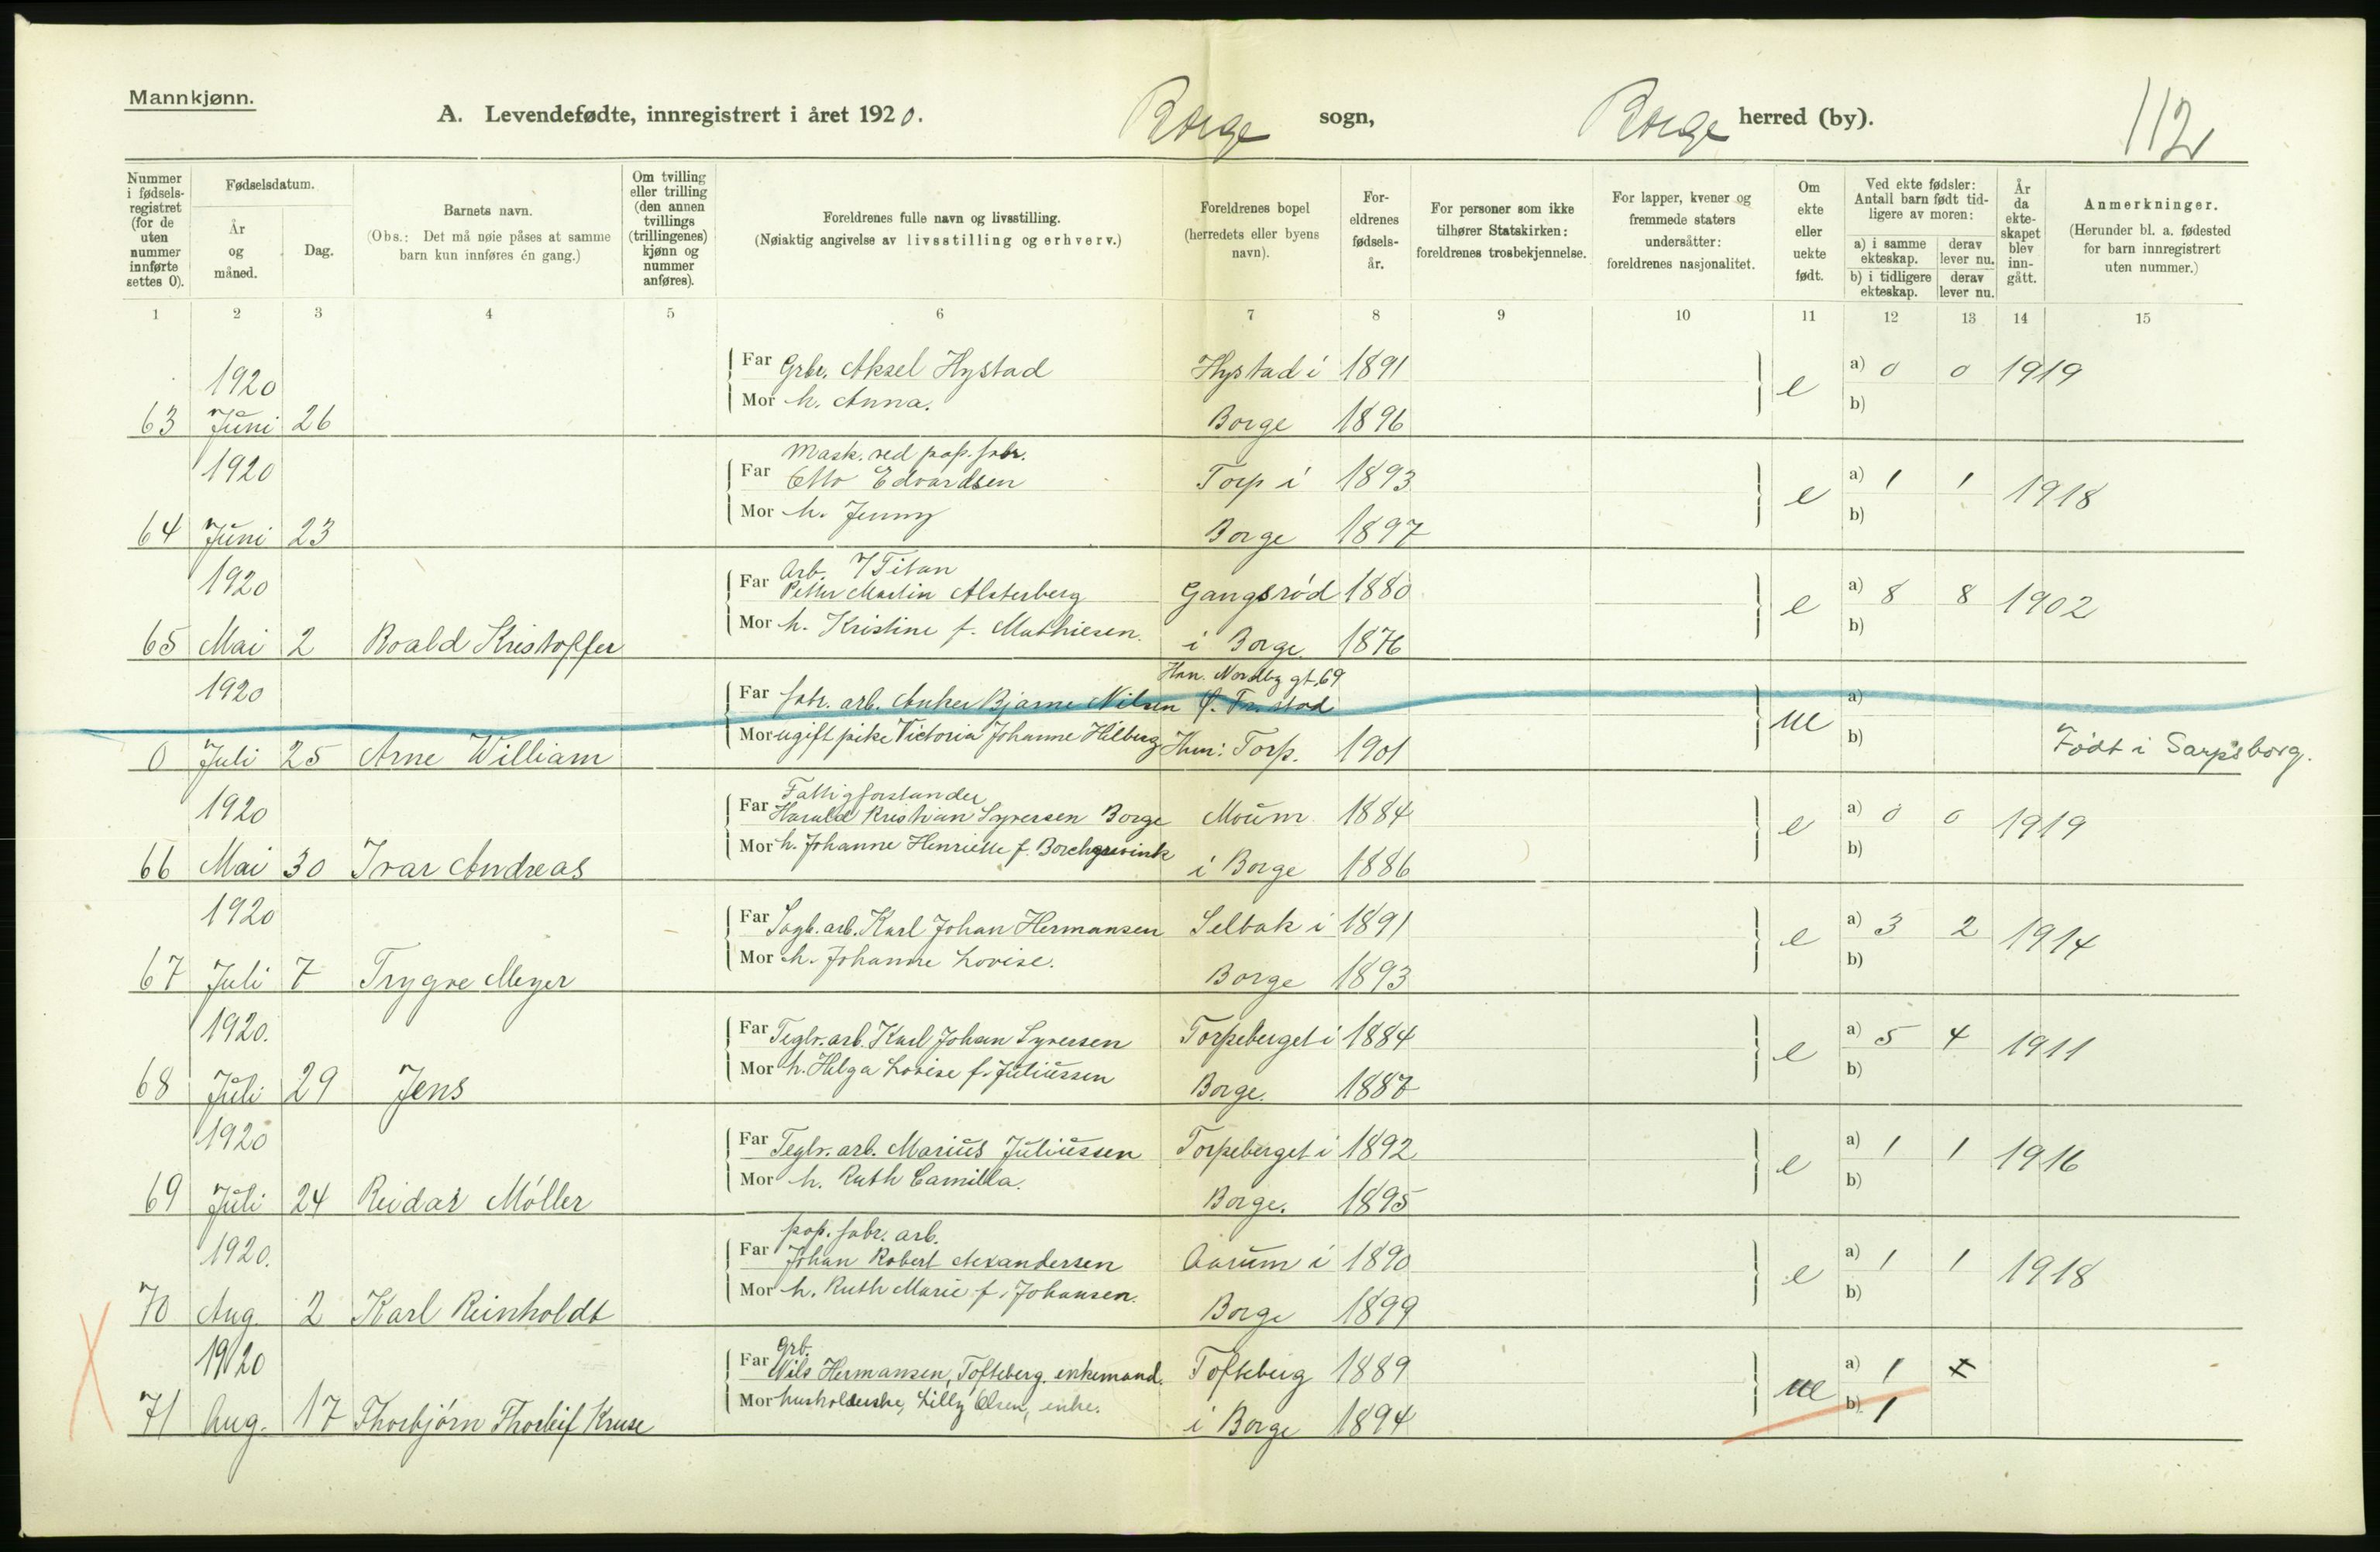 Mannkjønn.
A. Levendefødte, innregistrert i året 1920. Borge sogn, Borge herred (by). 112
Nummer i fødsels-registret (for de uten nummer innførte settes 0).
Fødselsdatum.
År og måned.
Dag.
Barnets navn.
(Obs.: Det må nøie påses at samme barn kun innføres én gang.)
Om tvilling eller trilling (den annen tvillings (trillingenes) kjønn og nummer anføres).
Foreldrenes fulle navn og livsstilling.
(Nøiaktig angivelse av livsstilling og erhverv.)
Foreldrenes bopel (herredets eller byens navn).
For-eldrenes fødsels-år.
For personer som ikke tilhører Statskirken: foreldrenes trosbekjennelse.
For lapper, kvener og fremmede staters undersåtter: foreldrenes nasjonalitet.
Om ekte eller uekte født.
Ved ekte fødsler: Antall barn født tid-ligere av moren:
a) i samme ekteskap. derav lever nu.
b) i tidligere ekteskap. derav lever nu.
År da ekte-skapet blev inn-gått.
Anmerkninger.
(Herunder bl. a. fødested for barn innregistrert uten nummer.)
1 2 3 4 5 6 7 8 9 10 11 12 13 14 15
1920 Far Grbr. Aksel Hystad Hystad i 1891 e a) 0 0 1919
63 Juni 26 Mor h. Anna. Borge 1896 b)
Mask. ved pap. fabr.
1920 Far Otto Edvardsen Torp i 1893 e a) 1 1 1918
64 Juni 23 Mor h. Jenny Borge 1897 b)
Arb. v/Titan
1920 Far Petter Martin Alsterberg Gangsrød 1880 e a) 8 8 1902
65 Mai 2 Roald Kristoffer Mor h. Kristine f. Mathiesen. i Borge. 1876 b)
Han. Nordby gt. 69
1920 Far fabr. arb. Anker Bjarne Nilsen Ø. Fr. stad ue a)
0 Juli 25 Arne William Mor ugift pike Victoria Johanne Hilberg Hun: Torp. 1901 b) Født i Sarpsborg.
Fattigforstander
1920 Far Harald Kristian Syversen Borge Moum 1884 e a) 0 0 1919
66 Mai 30 Ivar Andreas Mor h. Johanne Henriette f. Borchgrevink i Borge 1886 b)
1920 Far Sagb. arb. Karl Johan Hermansen Selbak i 1891 e a) 3 2 1914
67 Juli 7 Trygve Meyer Mor h. Johanne Lovise. Borge 1893 b)
1920. Far Teglv. arb. Karl Johan Syversen Torpeberget i 1884 e a) 5 4 1911
68 Juli 29 Jens Mor h. Helga Lovise f. Juliussen Borge. 1887 b)
1920 Far Teglv. arb. Marius Juliussen Torpeberget i 1892 e a) 1 1 1916
69 Juli 24 Reidar Møller Mor h. Ruth Camilla. Borge. 1895 b)
pap. fabr. arb.
1920. Far Johan Robert Alexandersen Aarum i 1890 e a) 1 1 1918
70 Aug. 2 Karl Reinholdt Mor h. Ruth Marie f. Johansen. Borge 1899 b)
Grb.
1920 Far Nils Hermansen, Tofteberg, enkemand. Tofteberg 1889 ue a) 1
71 Aug. 17 Thorbjørn Thorleif Kruse Mor husholderske, Lilly Olsen, enke. i Borge 1894 b) 1